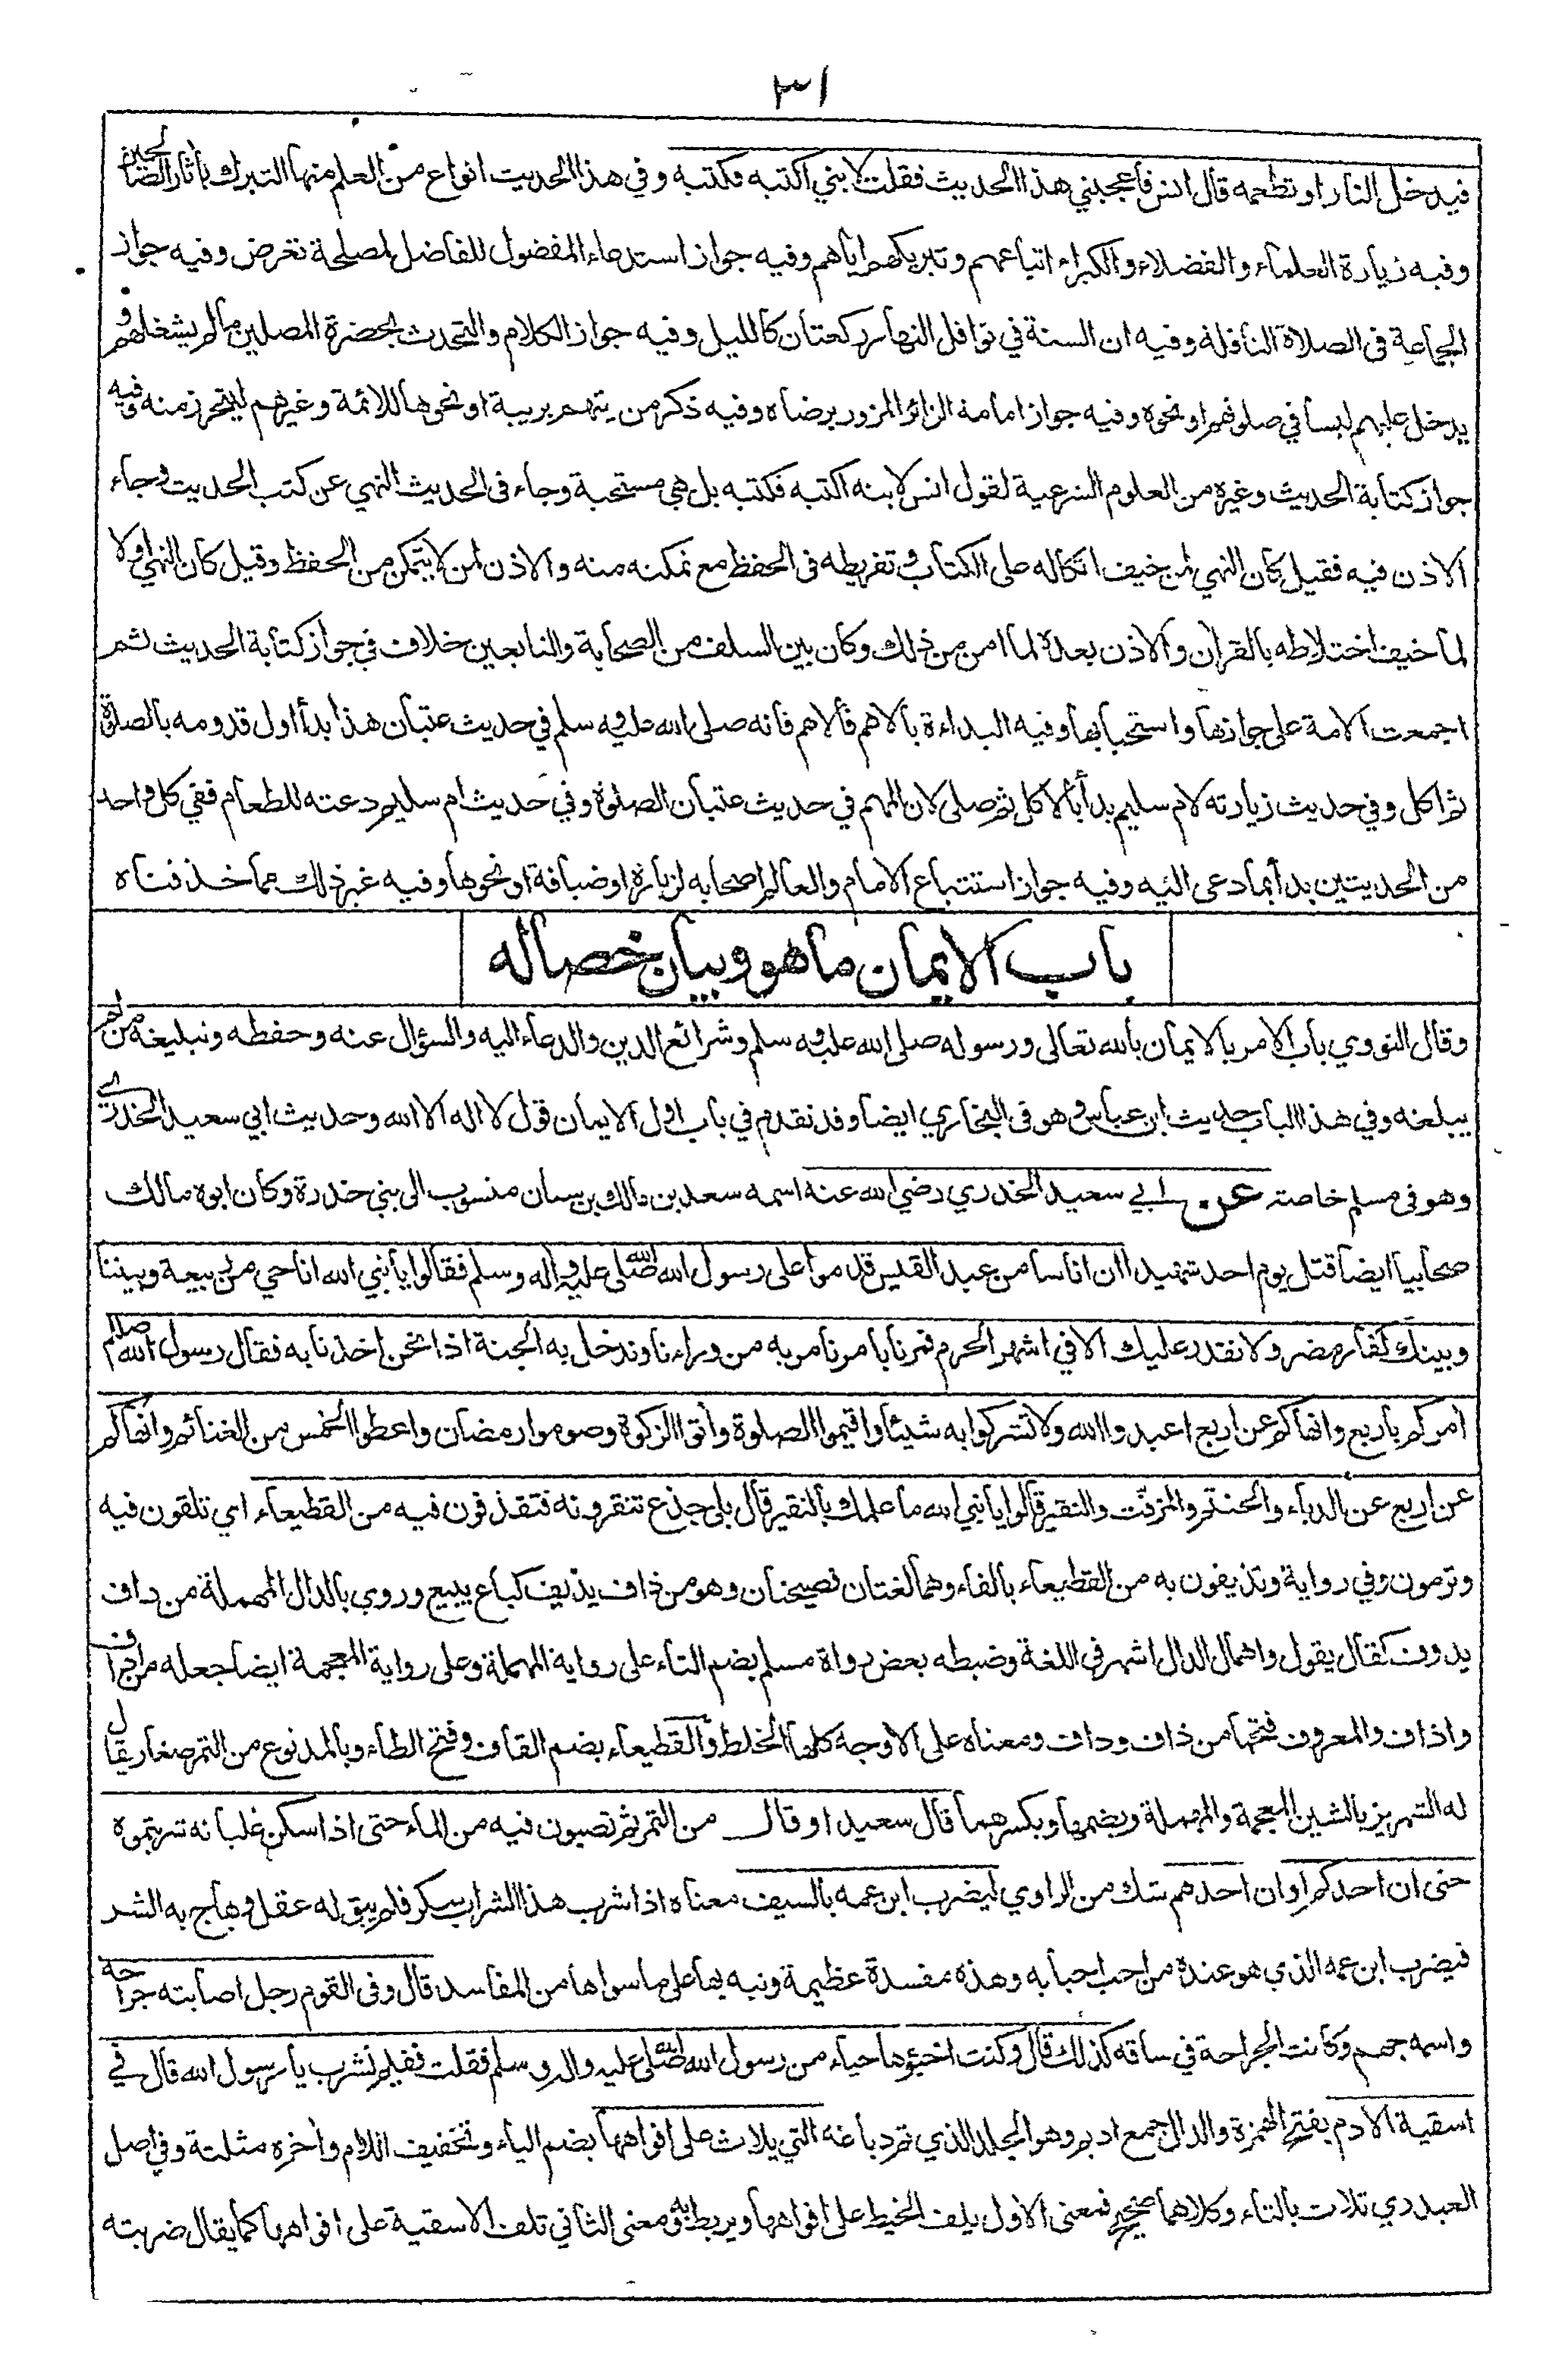 ٣١
فيدخل النار او تطعمه قال انس فأعجبني هذا الحديث فقلت لابني اكتبه فكتبه وفي هذا الحديث انواع من العلم منها التبرك بأثار الصالحين
وفيه زيارة العلماء والفضلاء والكبراء اتباعهم وتبريكهم اياهم وفيه جواز استدعاء المفضول للفاضل لمصلحة تعرض وفيه جواز
الجماعة في الصلاة النافلة وفيه ان السنة في نوافل النهار ركعتان كالليل وفيه جواز الكلام والتحدث بحضرة المصلين مالم يشغلهم و
يدخل عليهم لبسا في صلوتهم او نحوه وفيه جواز امامة الزائر المزور برضاه وفيه ذكر من يتهم بريبة او نحوها للائمة وغيرهم ليتحرز منه وفيه
جواز كتابة الحديث وغيره من العلوم الشرعية لقول انس لابنه اكتبه فكتبه بل هي مستحبة وجاء في الحديث النهي عن كتب الحديث وجاء
الاذن فيه فقيل كان النهي لمن خيف اتكاله على الكتاب وتفريطه في الحفظ مع تمكنه منه والاذن لمن لا يتمكن من الحفظ وقيل كان النهي اولا
لما خيف اختلاطه بالقرأن والاذن بعده لما امن من ذلك وكان بين السلف من الصحابة والتابعين خلاف في جواز كتابة الحديث ثم
اجمعت الامة على جوازها واستحبابها وفيه البداءة بالاهم فالاهم فانه صلى الله عليه وسلم في حديث عتبان هذا بدأ اول قدومه بالصلوة
ثم اكل وفي حديث زيارته لام سليم بدأ بالاكل ثم صلى لان المهم في حديث عتبان الصلوة وفي حديث ام سليم دعته للطعام ففي كل واحد
من الحديثين بدأ بما دعى اليه وفيه جواز استتباع الامام والعالم اصحابه لزيارة او ضيافة او نحوها وفيه غير ذلك مما حذفناه
باب الايمان ما هو وبيان خصاله
وقال النووي باب الامر بالايمان بالله تعالى ورسوله صلى الله عليه وسلم وشرائع الدين والدعاء اليه والسؤال عنه وحفظه وتبليغه من لم
يبلغه وفي هذا الباب حديث ابن عباس وهو في البخاري ايضا وقد تقدم في باب اول الايمان قول لا اله الا الله وحديث ابي سعيد الخدري
وهو في مسلم خاصة عن ابي سعيد الخدري رضي الله عنه اسمه سعد بن مالك بن سنان منسوب الى بني خدرة وكان ابوه مالك
صحابيا ايضا قتل يوم احد شهيدا ان اناسا من عبد القيس قدموا على رسول الله صلى الله عليه واله وسلم فقالوا يا نبي الله انا حي من ربيعة وبيننا
وبينك كفار مضر ولا نقدر عليك الا في اشهر الحرم فمرنا بامر نامر به من وراءنا وندخل به الجنة اذا نحن اخذنا به فقال رسول الله صللم
أمركم باربع وانهاكم عن اربع اعبدوا الله ولا تشركوا به شيئا واقيموا الصلوة وأتوا الزكوة وصوموا رمضان واعطوا الخمس من الغنائم وانهاكم
عن اربع عن الدباء والحنتم والمزفت والنقير قالوا يا نبي الله ما علمك بالنقير قال بلى جذع تنقرونه فتقذفون فيه من القطيعاء اي تلقون فيه
وترمون وفي رواية وتذيفون به من القطيعاء بالفاء وهما لغتان فصيحتان وهو من ذاف يذيف كباع يبيع وروي بالدال المهملة من داف
يدوف كقال يقول واهمال الدال اشهر في اللغة وضبطه بعض رواة مسلم بضم التاء على رواية المهملة وعلى رواية المعجمة ايضا جعله من اذاف
واذاف والمعروف فتحها من ذاف وداف ومعناه على الاوجه كلها الخلط والقطيعاء بضم القاف وفتح الطاء وبالمد نوع من التمر صغار يقال
له الشهريز بالشين المعجمة والمهملة وبضمها وبكسرهما قال سعيد او قال من التمر ثم تصبون فيه من الماء حتى اذا سكن غليانه شربتموه
حتى ان احدكم او ان احدهم شك من الراوي ليضرب ابن عمه بالسيف معناه اذا شرب هذا الشراب سكر فلم يبق له عقل وهاج به الشر
فيضرب ابن عمه الذي هو عنده من احب احبابه وهذه مفسدة عظيمة ونبه بها على ما سواها من المفاسد قال وفي القوم رجل اصابته جراحة
واسمه جهم وكانت الجراحة في ساقه كذلك قال وكنت اخبؤها حياء من رسول الله صلى الله عليه واله وسلم فقلت ففيم نشرب يا رسول الله قال في
اسقية الادم بفتح الهمزة والدال جمع اديم وهو الجلد الذي تم دباغه التي يلاث على افواهها بضم الياء وتخفيف اللام وأخره مثلثة وفي اصل
العبدري تلاث بالتاء وكلاهما صحيح فمعنى الاول يلف الخيط على افواهها ويربط به ومعنى الثاني تلف الاسقية على افواهها كما يقال ضربته